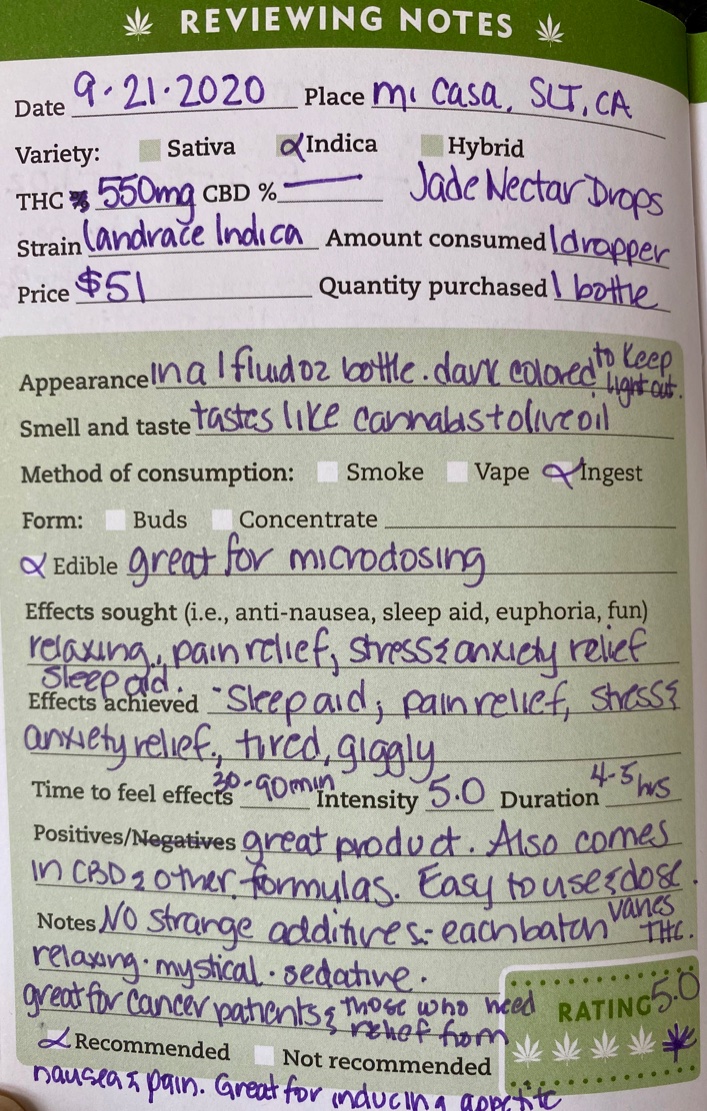 REVIEWING NOTES
Date 9.21.2020 Place mi casa, SLT, CA
Variety: Sativa Indica Hybrid
THC % 550mg CBD % — Jade Nectar Drops
Strain Landrace Indica Amount consumed 1 dropper
Price $51 Quantity purchased 1 bottle
Appearance in a 1 fluid oz bottle. dark colored to keep light out.
Smell and taste tastes like cannabis + olive oil
Method of consumption: Smoke Vape Ingest
Form: Buds Concentrate
Edible great for microdosing
Effects sought (i.e., anti-nausea, sleep aid, euphoria, fun)
relaxing, pain relief, stress & anxiety relief
sleep aid.
Effects achieved - Sleep aid, pain relief, stress &
anxiety relief., tired, giggly
Time to feel effects 30-90min Intensity 5.0 Duration 4-5 hrs
Positives/Negatives great product. Also comes
in CBD & other formulas. Easy to use & dose.
Notes NO strange additives - each batch varies THC.
relaxing · mystical · sedative.
great for cancer patients & those who need
relief from
RATING 5.0
Recommended Not recommended
nausea & pain. Great for inducing appetite